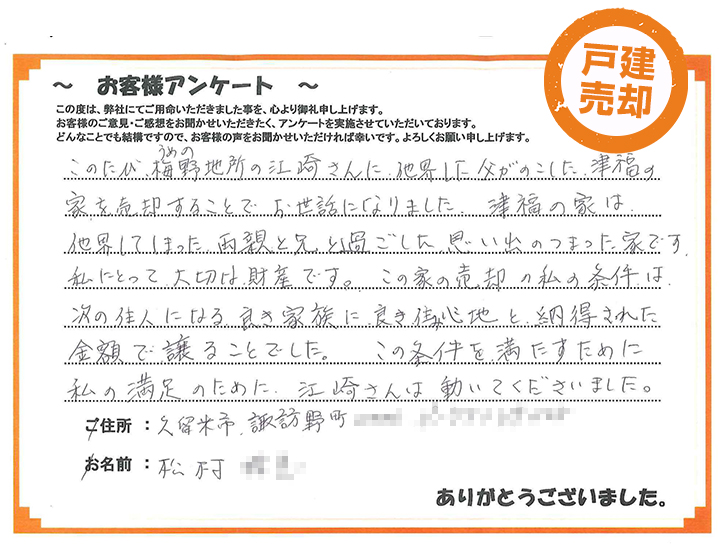 戸建
売却
～ お客様アンケート ～
この度は、弊社にてご用命いただきました事を、心より御礼申し上げます。
お客様のご意見・ご感想をお聞かせいただきたく、アンケートを実施させていただいております。
どんなことでも結構ですので、お客様の声をお聞かせいただければ幸いです。よろしくお願い申し上げます。
うめの
このたび、梅野地所の江崎さんに、他界した父がのこした、津福の
家を売却することで お世話になりました。 津福の家は、
他界してしまった、両親と兄と過ごした、思い出のつまった家です。
私にとって大切な財産です。この家の売却の私の条件は、
次の住人になる良き家族に良き住み心地と、納得された
金額で譲ることでした。 この条件を満たすために
私の満足のために、江崎さんは動いてくださいました。
ご住所：久留米市、諏訪野町
お名前：松村
ありがとうございました。